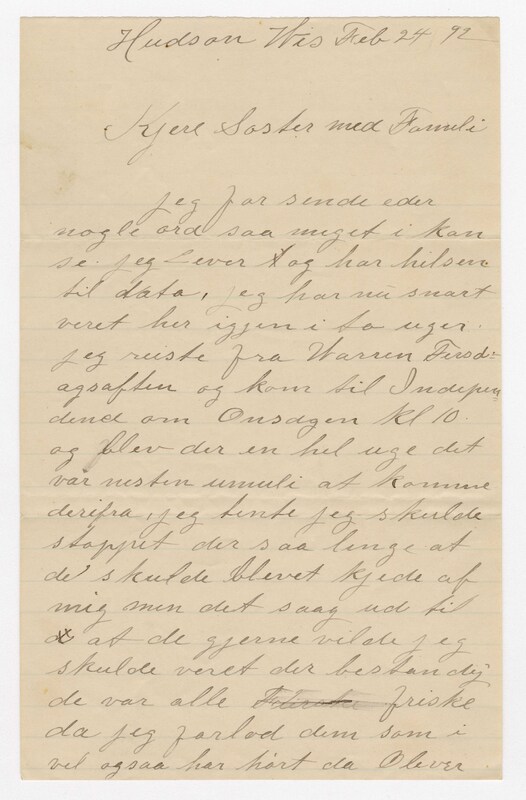 Hudson Wis Feb 24 92
Kjere Søster med Famuli
jeg for sende eder
nogle ord saa muget i kan
se. jeg Lever og har hilsen
til data, jeg har nu snart
veret her iggen i to uger.
jeg reiste fra Warren Tirsd-
agsaften og kom til Indepen-
dend om Onsdgen kl 10.
og blev der en hel uge det
var nesten umuli at komme
derifra, jeg tente jeg skulde
stoppet der saa linge at
de skulde blevet kjede af
mig men det saag ud til
at de gjerne vilde jeg
skulde veret der bestandij
de var alle friske
da jeg forlod dem som i
vel ogsaa har hørt da Olever